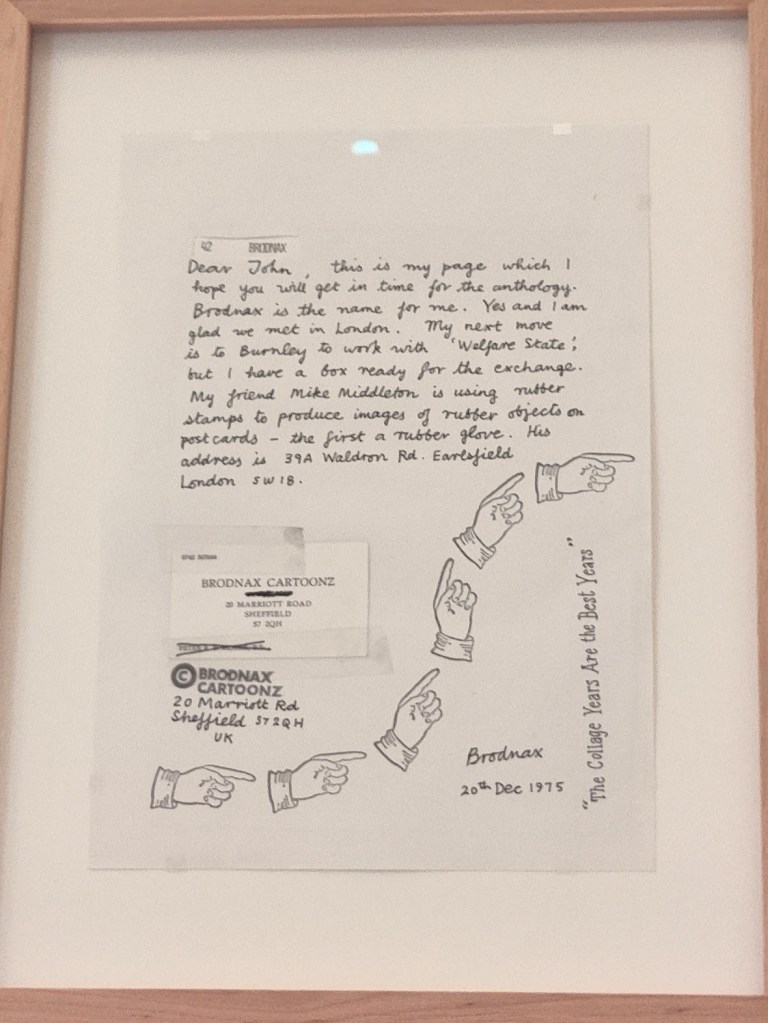 42 BRODNAX
Dear John, this is my page which I
hope you will get in time for the anthology.
Brodnax is the name for me. Yes and I am
glad we met in London. My next move
is to Burnley to work with 'Welfare State',
but I have a box ready for the exchange.
My friend Mike Middleton is using rubber
stamps to produce images of rubber objects on
postcards – the first a rubber glove. His
address is 39A Waldron Rd. Earlsfield
London SW18.
BRODNAX CARTOONZ
20 MARRIOTT ROAD
SHEFFIELD
S7 2QH
© BRODNAX
CARTOONZ
20 Marriott Rd
Sheffield S7 2QH
UK
Brodnax
20th Dec 1975
"The Collage Years Are the Best Years"